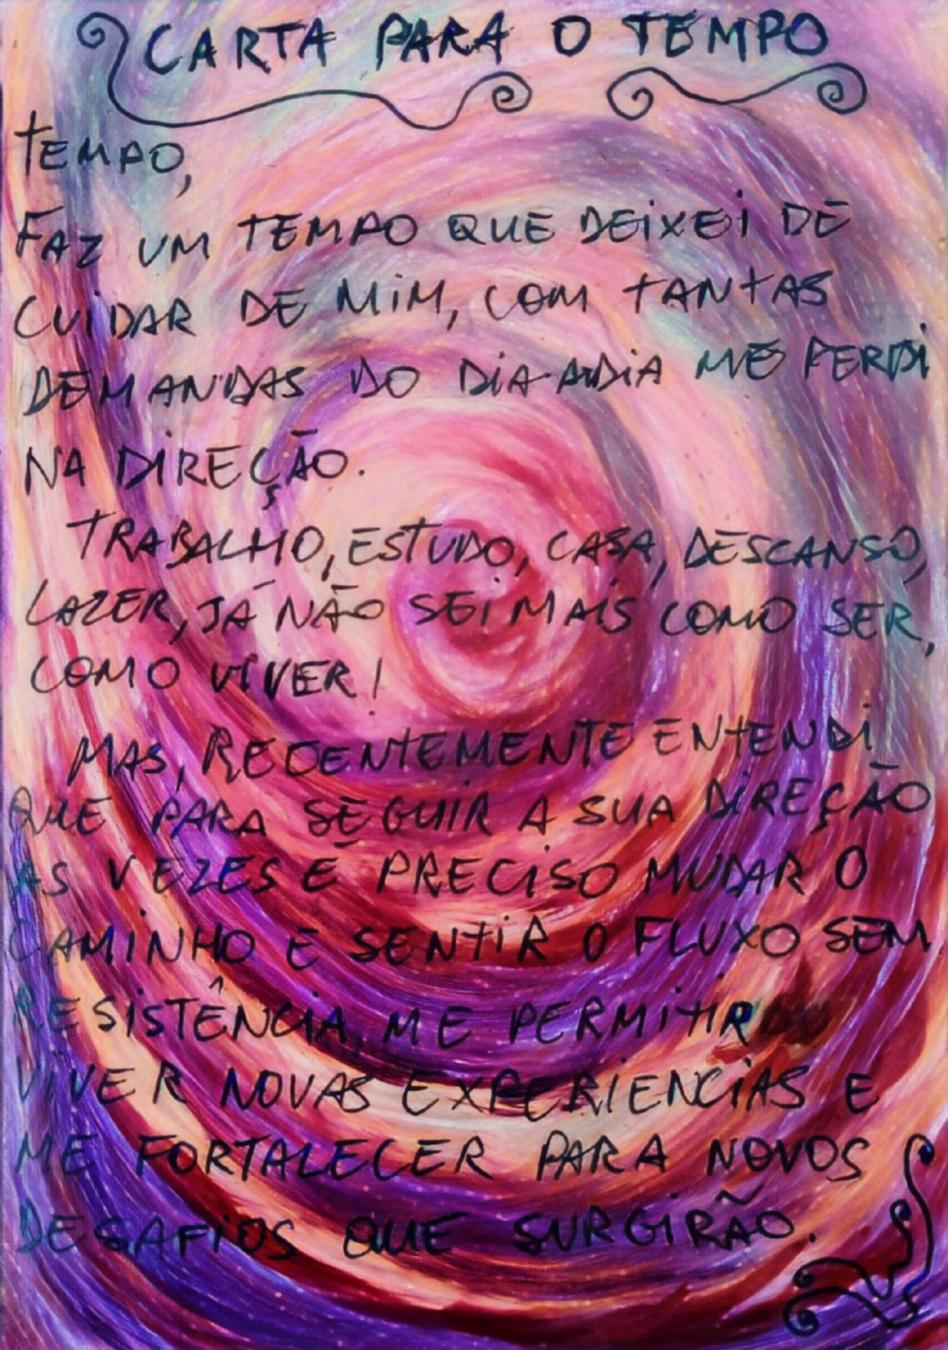 CARTA PARA O TEMPO
TEMPO,
FAZ UM TEMPO QUE DEIXEI DE
CUIDAR DE MIM, COM TANTAS
DEMANDAS DO DIA-A-DIA ME PERDI
NA DIREÇÃO.
TRABALHO, ESTUDO, CASA, DESCANSO,
LAZER, JÁ NÃO SEI MAIS COMO SER,
COMO VIVER!
MAS, RECENTEMENTE ENTENDI
QUE PARA SEGUIR A SUA DIREÇÃO
AS VEZES É PRECISO MUDAR O
CAMINHO E SENTIR O FLUXO SEM
RESISTÊNCIA, ME PERMITIR
VIVER NOVAS EXPERIENCIAS E
ME FORTALECER PARA NOVOS
DESAFIOS QUE SURGIRÃO.